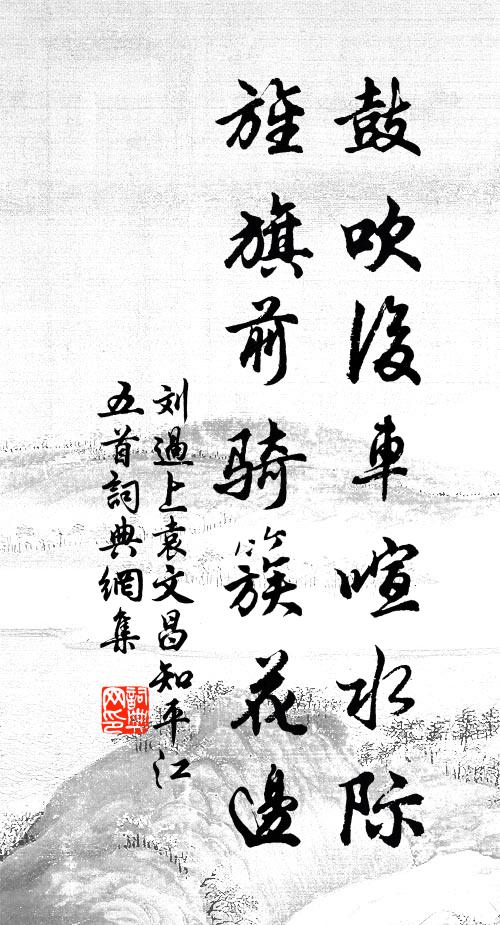 鼓吹後車喧水际
旌旗前騎簇花邊
刘過上袁文昌知平江
五首詞典網集
詞典网印